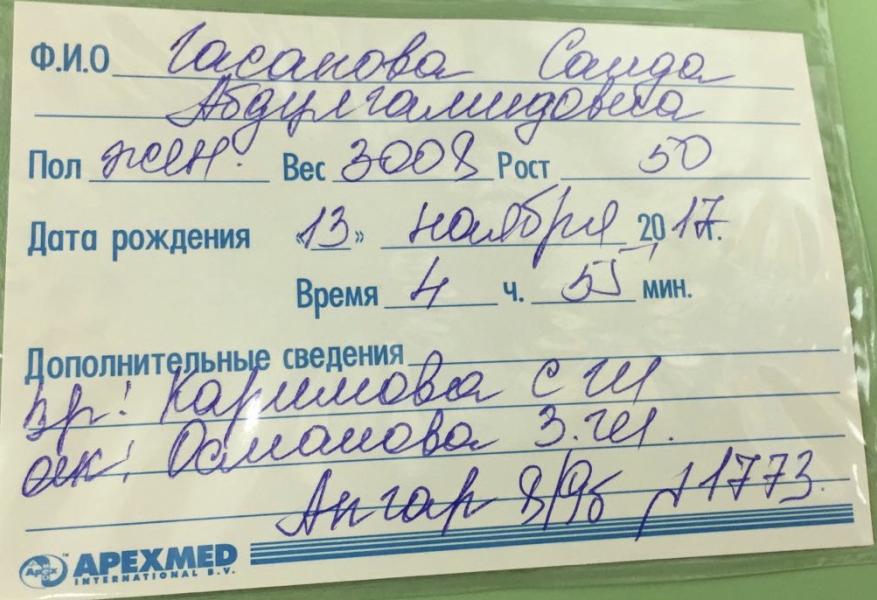 Ф.И.О Гасанова Саида
Абдулгамидовна
Пол жен. Вес 3008 Рост 50
Дата рождения «13» ноября 2017г.
Время 4 ч. 55 мин.
Дополнительные сведения
вр: Каримова С Ш
ак: Османова З.Ш.
Ангар 8/9б 1773.
APEXMED
INTERNATIONAL B.V.